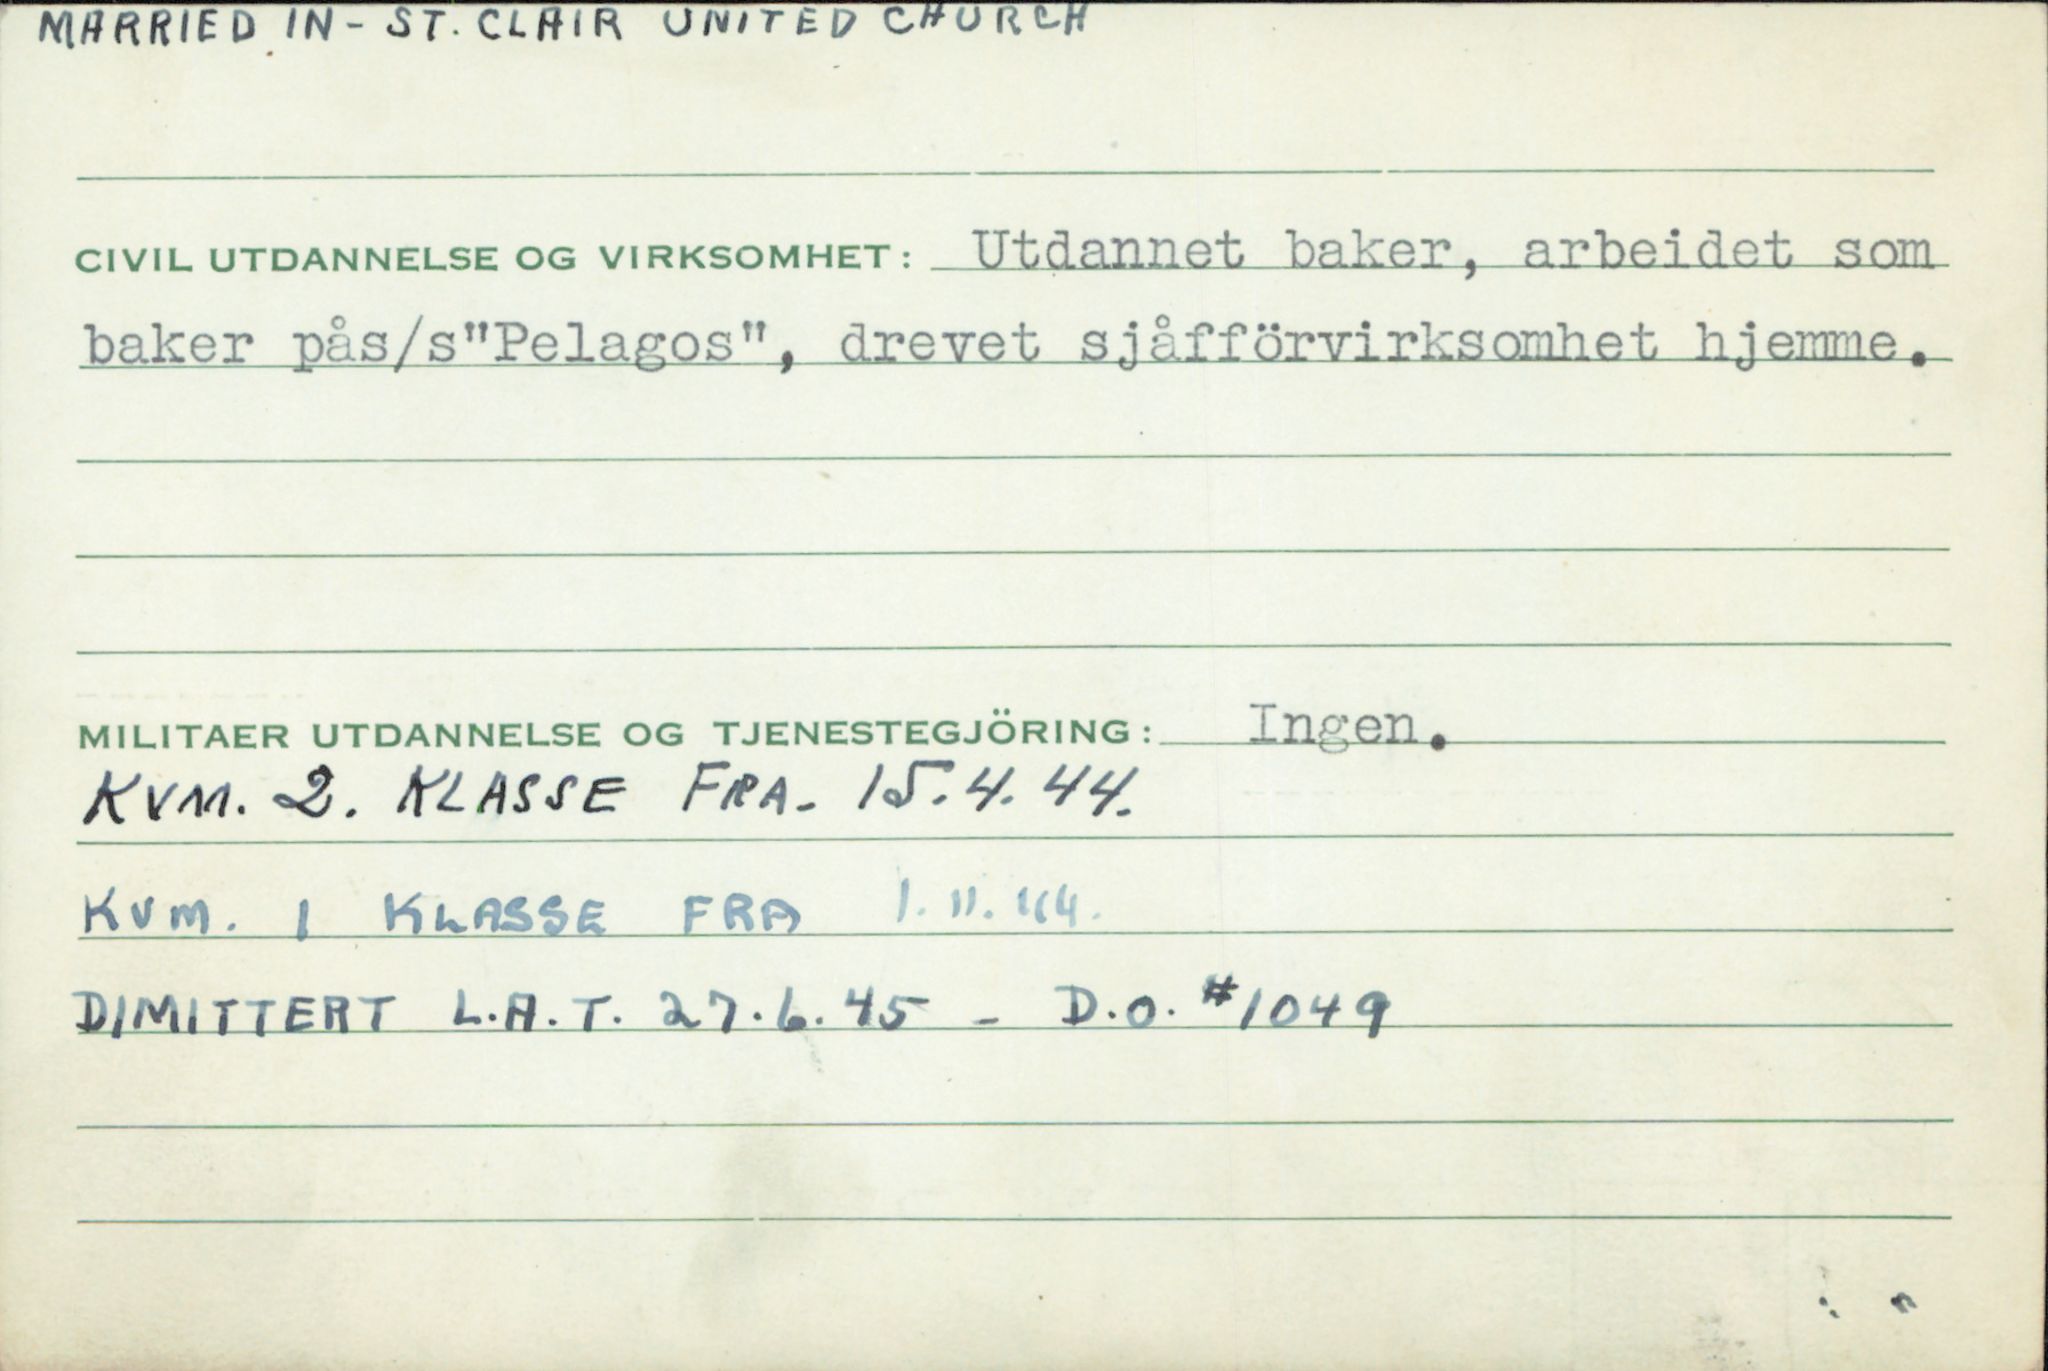 MARRIED IN - ST. CLAIR UNITED CHURCH
CIVIL UTDANNELSE OG VIRKSOMHET: Utdannet baker, arbeidet som
baker pås/s"Pelagos", drevet sjåfförvirksomhet hjemme.
MILITAER UTDANNELSE OG TJENESTEGJÖRING: Ingen.
KVM. 2. KLASSE FRA. 15.4.44.
KVM. 1 KLASSE FRA 1.11.44.
DIMITTERT L.A.T. 27.6.45 - D.O. #1049